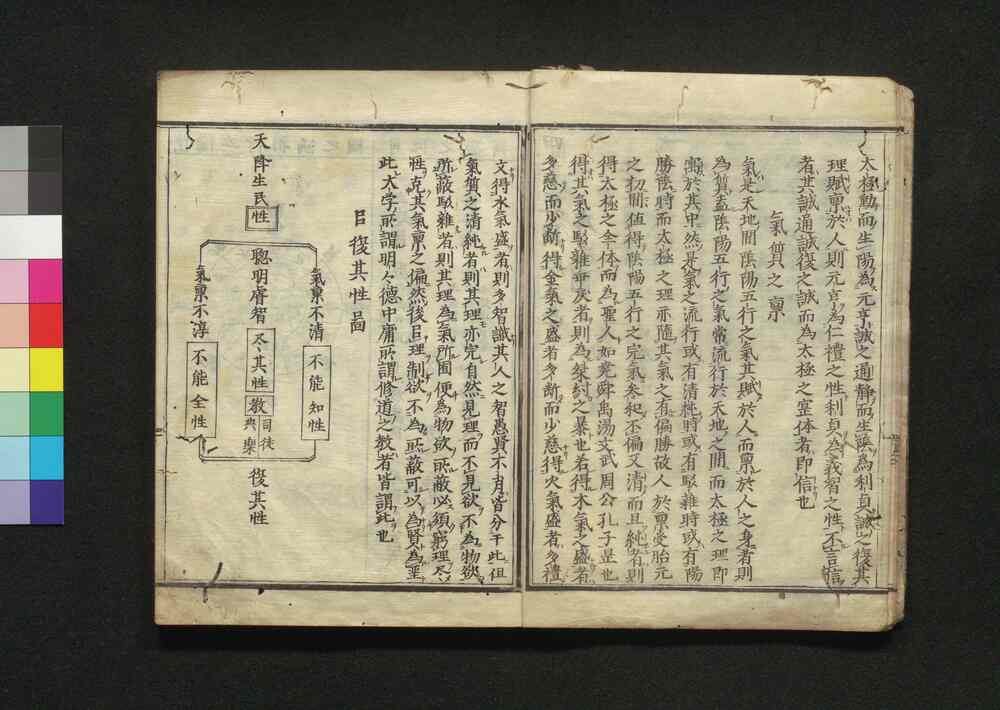 太極動而生陽為元亨誠之通靜而生陰為利貞誠之復其
理賦禀於人則元亨為仁禮之性利貞為義智之性不言信
者其誠通誠復之誠而為太極之实体者即信也
氣質之禀
氣是天地間陰陽五行之氣其賦於人而禀於人之身者則
為質盖陰陽五行之氣常流行於天地之間而太極之理即
寓於其中然是氣之流行或有清純時或有駁雜時或有陽
勝陰時而太極之理亦隨其氣之有偏勝故人於禀受胎元
之初間值得陰陽五行之完氣参和不偏又清而且純者則
得太極之全体而為聖人如尭舜禹湯文武周公孔子是也
得其氣之駁雜乖戾者則為桀紂之暴也若得木氣之盛者
多慈而少断得金氣之盛者多断而少慈得火氣盛者多禮
文得水氣盛者則多智識其人之智愚賢不肖皆分于此但
氣質之清純者則其理亦完自然見理而不見欲不為物欲
所蔽駁雜者則其理為氣所囿便為物欲所蔽必須窮理尽
性克其氣禀之偏然後以理制欲不為所蔽可以為賢為聖
此大学所謂明々德中庸所謂修道之教者皆謂此也
㠯復其性啚
天降生民性
氣禀不清 不能知性
聰明睿智 尽其性 教 司徒 典樂
氣禀不淳 不能全性
復其性